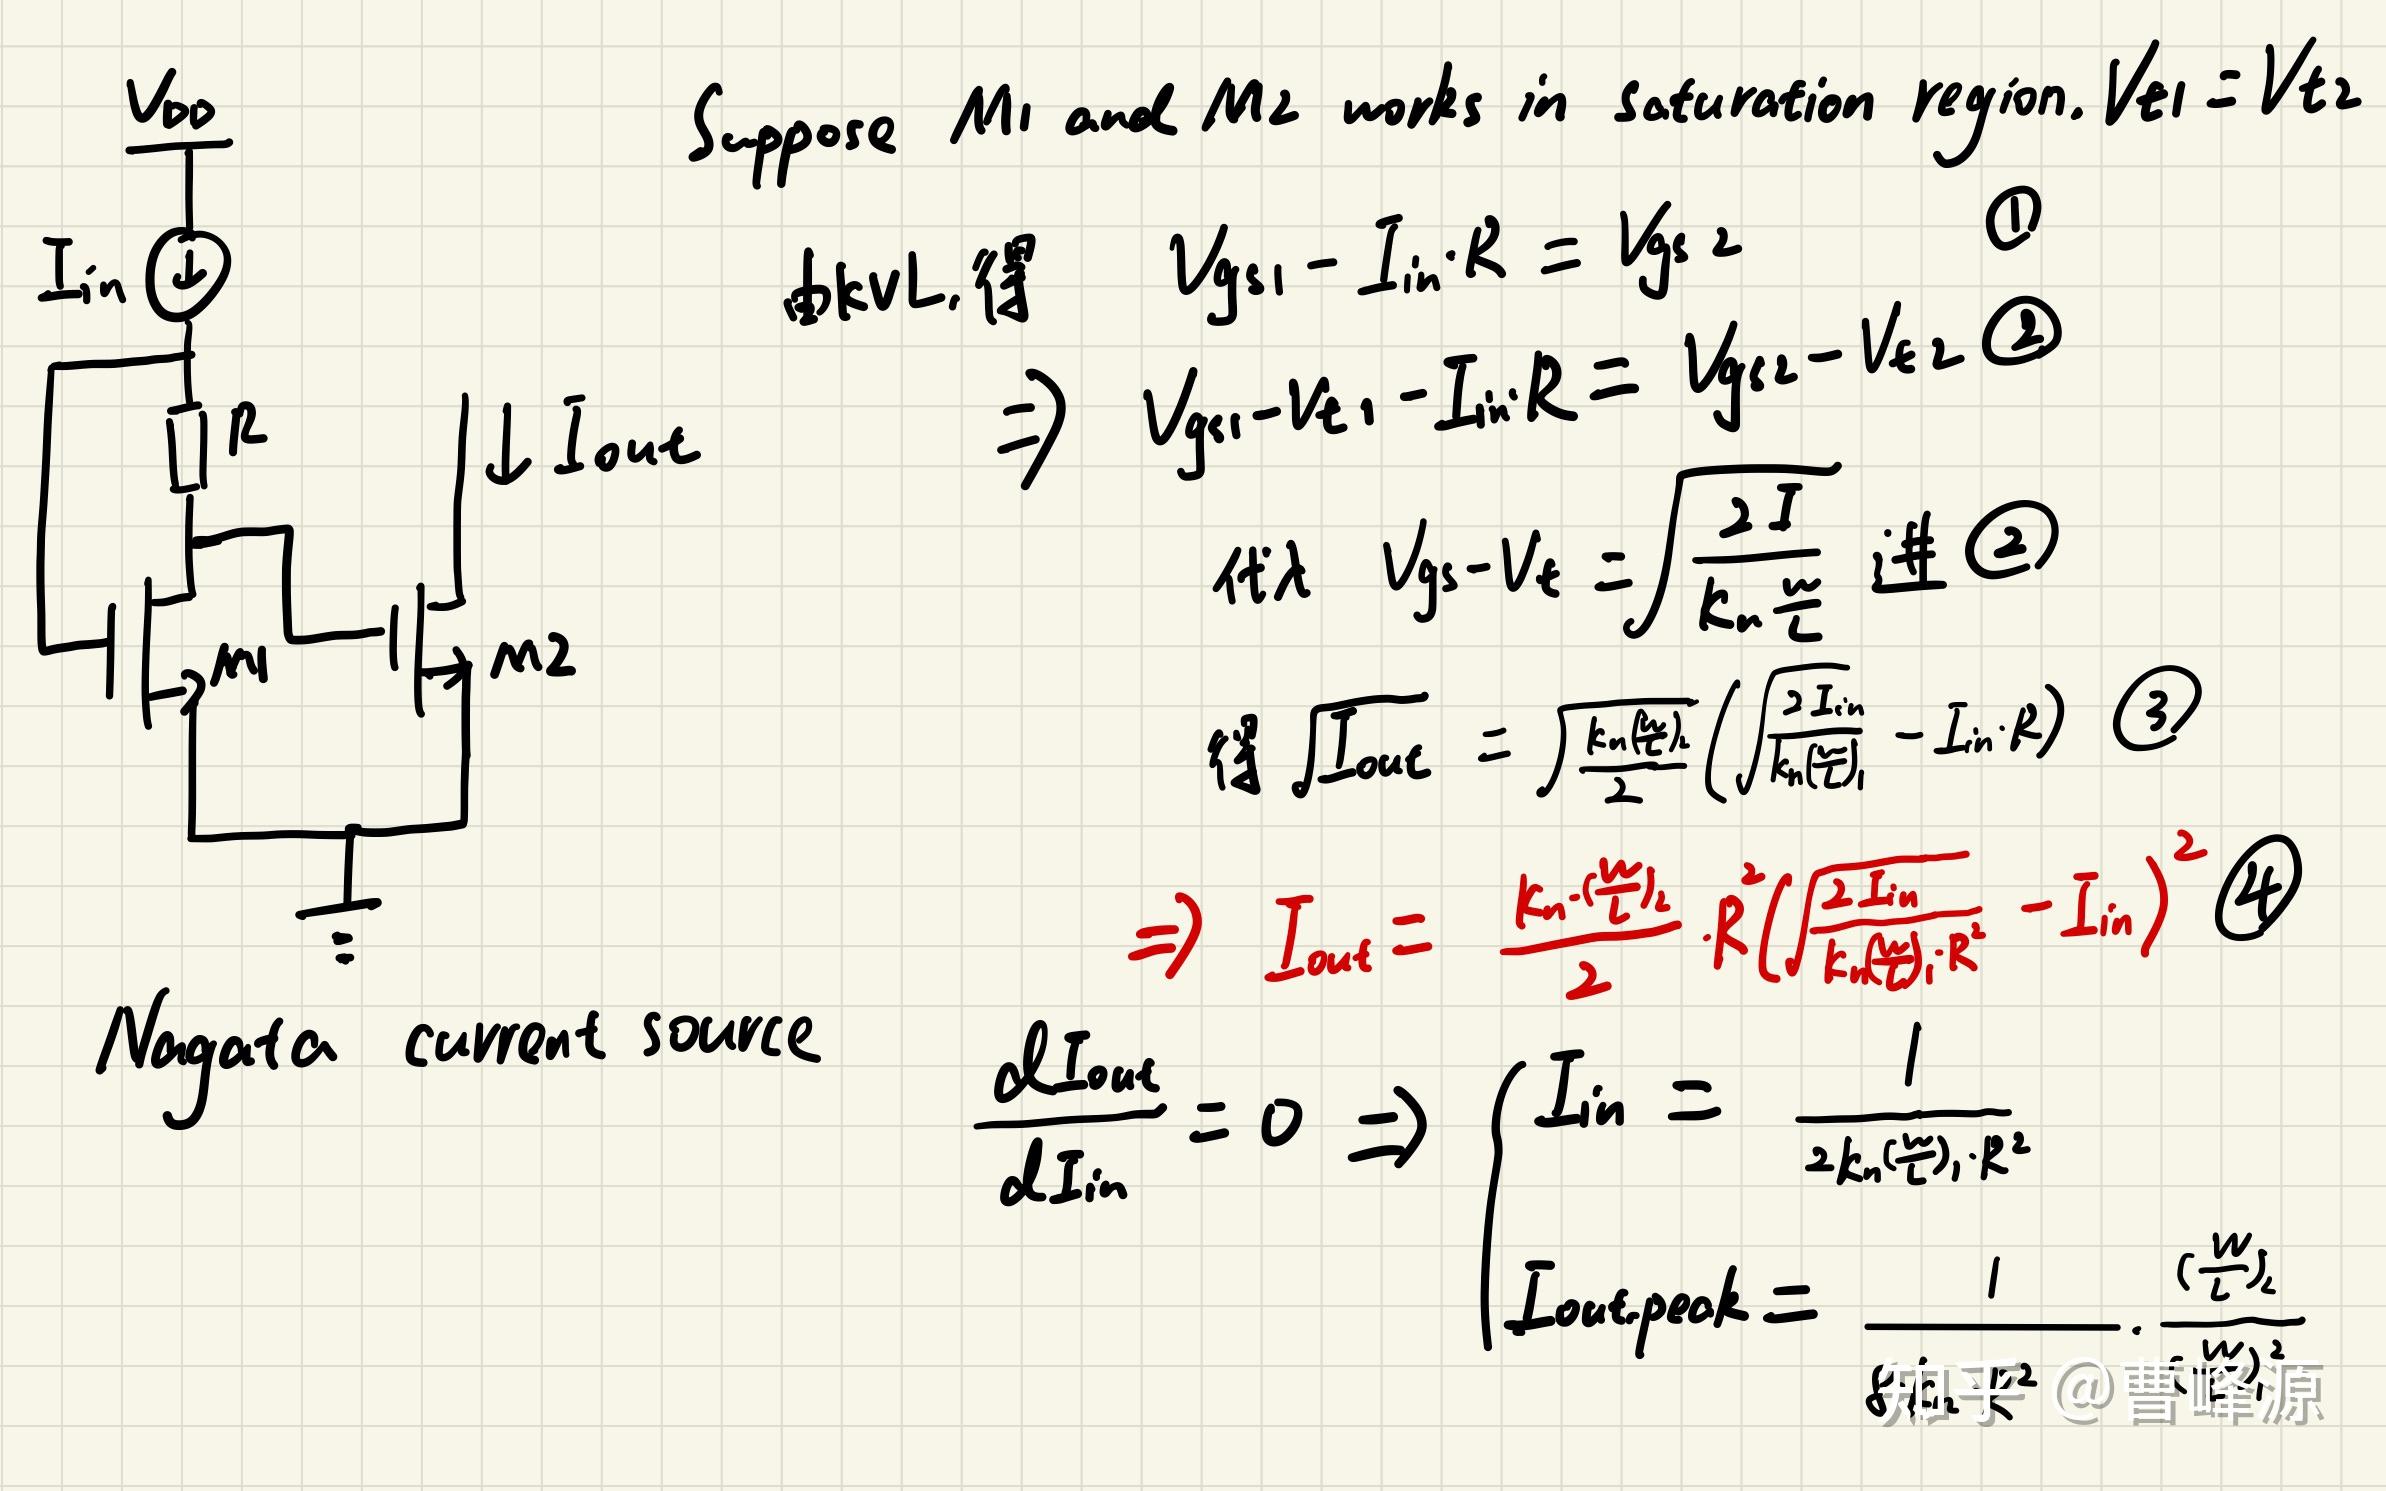 VDD
Iin
R
↓ Iout
M1
M2
Nagata current source
Suppose M1 and M2 works in saturation region. Vt1 = Vt2
由KVL,得 Vgs1 - Iin·R = Vgs2 ①
⇒ Vgs1 - Vt1 - Iin·R = Vgs2 - Vt2 ②
代入 Vgs - Vt = √(2I / (kn W/L)) 进 ②
得 √Iout = √(kn(W/L)2 / 2) (√(2Iin / (kn(W/L)1)) - Iin·R) ③
⇒ Iout = (kn·(W/L)2 / 2)·R² (√(2Iin / (kn(W/L)1·R²)) - Iin)² ④
dIout/dIin = 0 ⇒ { Iin = 1 / (2kn(W/L)1·R²)
Iout,peak = 1 / (8kn R²) · (W/L)2 / (W/L)1²
知乎 @曹峰源